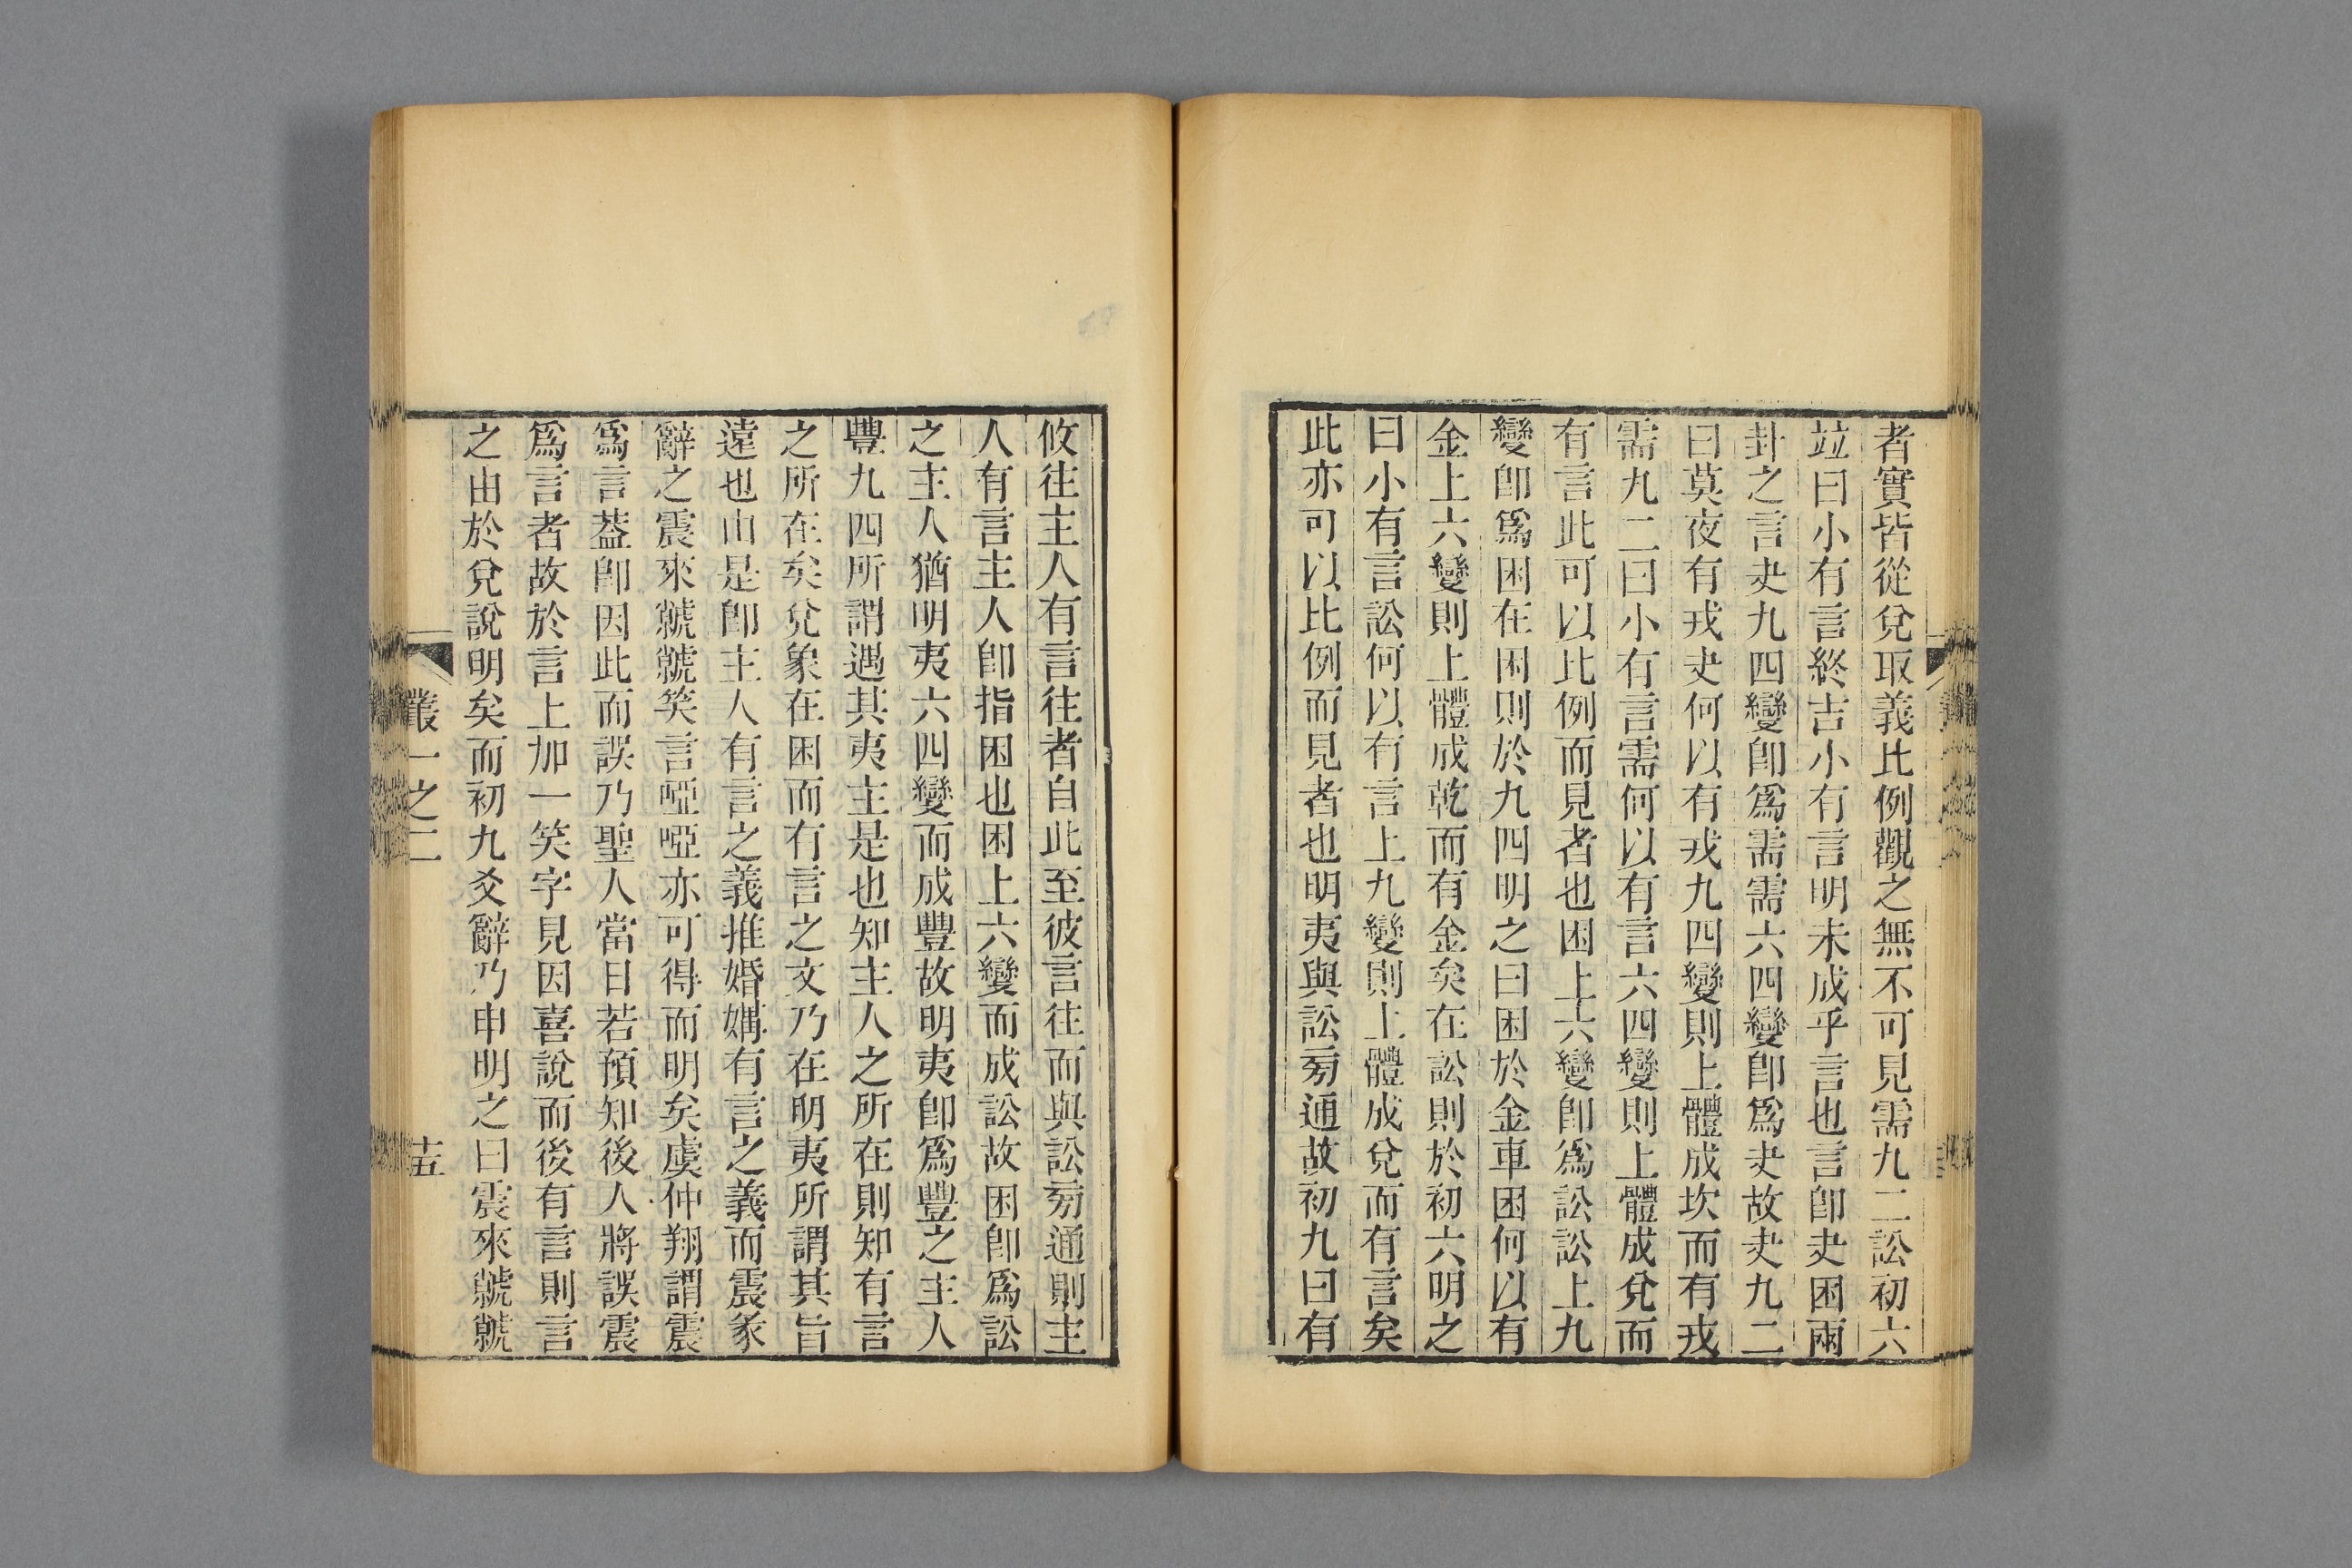 者實皆從兌取義比例觀之無不可見需九二訟初六
竝曰小有言終吉小有言明未成乎言也言卽夬困兩
卦之言夬九四變卽爲需需六四變卽爲夬故夬九二
曰莫夜有戎夬何以有戎九四變則上體成坎而有戎
需九二曰小有言需何以有言六四變則上體成兌而
有言此可以比例而見者也困上六變卽爲訟訟上九
變卽爲困在困則於九四明之曰困於金車困何以有
金上六變則上體成乾而有金矣在訟則於初六明之
曰小有言訟何以有言上九變則上體成兌而有言矣
此亦可以比例而見者也明夷與訟旁通故初九曰有
攸往主人有言往者自此至彼言往而與訟旁通則主
人有言主人卽指困也困上六變而成訟故困卽爲訟
之主人猶明夷六四變而成豐故明夷卽爲豐之主人
豐九四所謂遇其夷主是也知主人之所在則知有言
之所在矣兌象在困而有言之文乃在明夷所謂其旨
遠也由是卽主人有言之義推婚媾有言之義而震彖
辭之震來虩虩笑言啞啞亦可得而明矣虞仲翔謂震
爲言葢卽因此而誤乃聖人當日若預知後人將誤震
爲言者故於言上加一笑字見因喜說而後有言則言
之由於兌說明矣而初九爻辭乃申明之曰震來虩虩
叢一之二
十五